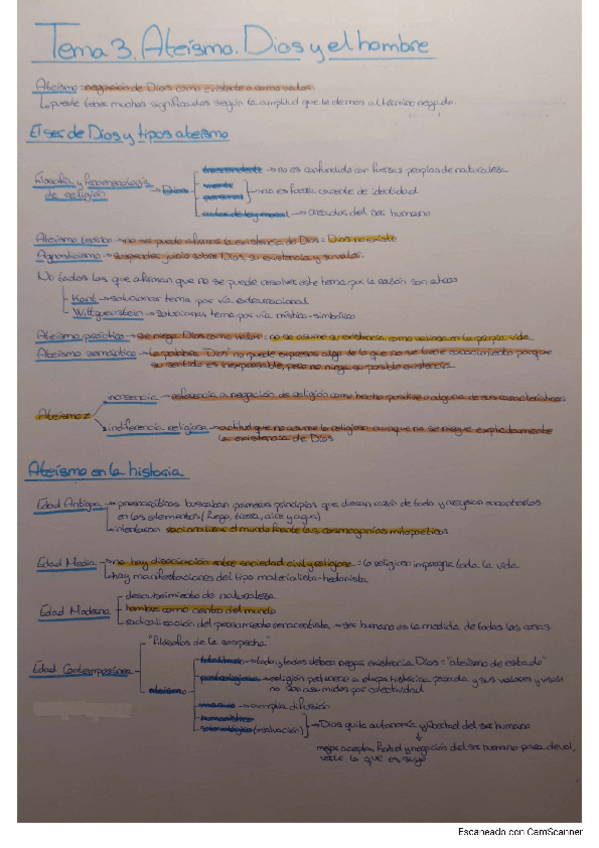 Tema 3. Ateísmo. Dios y el hombre
Ateísmo = negación de Dios como existente o como valor.
puede tener muchos significados según la amplitud que le demos al término negado.
El ser de Dios y tipos ateísmo
Filosofía y fenomenología de religión → Dios
trascendente → no es confundido con fuerzas propias de naturaleza
uno
personal → no es fuerza carente de identidad
autor de ley moral → creador del ser humano
Ateísmo teórico → no se puede afirmar la existencia de Dios = Dios no existe
Agnosticismo → suspender juicio sobre Dios, su existencia y su valor.
No todos los que afirman que no se puede resolver este tema por la razón son ateos
Kant → soluciona tema por vía extraracional
Wittgenstein → soluciona tema por vía místico-simbólico
Ateísmo práctico → se niega Dios como valor = no se asume su existencia como valiosa en la propia vida
Ateísmo semántico → La palabra "Dios" no puede expresar algo de lo que no se tiene conocimiento porque
su sentido es inexpresable, pero no niega su posible existencia
Ateísmo ≠
increencia → referencia a negación de religión como hecho positivo o alguna de sus características.
indiferencia religiosa → actitud que no asume lo religioso aunque no se niegue explícitamente
la existencia de Dios
Ateísmo en la historia
Edad Antigua → presocráticos buscaban primeros principios que dieran razón de todo y necesitan encontrarlos
en los elementos (fuego, tierra, aire y agua)
intentaban racionalizar el mundo frente las cosmogonías mitopoéticas
Edad Media → no hay disociación entre sociedad civil y religiosa = lo religioso impregna toda la vida
hay manifestaciones del tipo materialista-hedonista
Edad Moderna
descubrimiento de naturaleza
hombre como centro del mundo
radicalización del pensamiento renacentista → ser humano es la medida de todas las cosas
Edad Contemporánea
"filósofos de la sospecha"
ateísmo
→ todo y todos deben negar existencia Dios = "ateísmo de estado"
postreligioso → religión pertenece a etapa histórica pasada y sus valores y visión
no son asumidos por colectividad
masivo → amplia difusión
humanístico
(malvación) → Dios quita autonomía y libertad del ser humano
mejor aceptar finitud y negación del ser humano para devol-
verle lo que es suyo
Escaneado con CamScanner